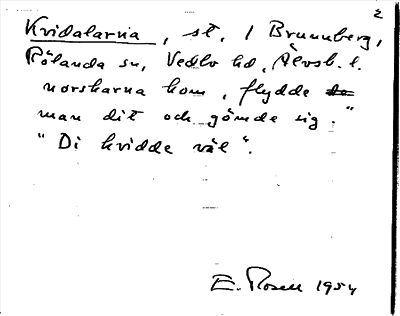 2
Kvidalarna, st. / Brunnberg,
Rölanda sn, Vedbo hd, Älvsb. l.
norskarna kom, flydde
man dit och gömde sig."
"Di kvidde väl".
E. Rosell 1954